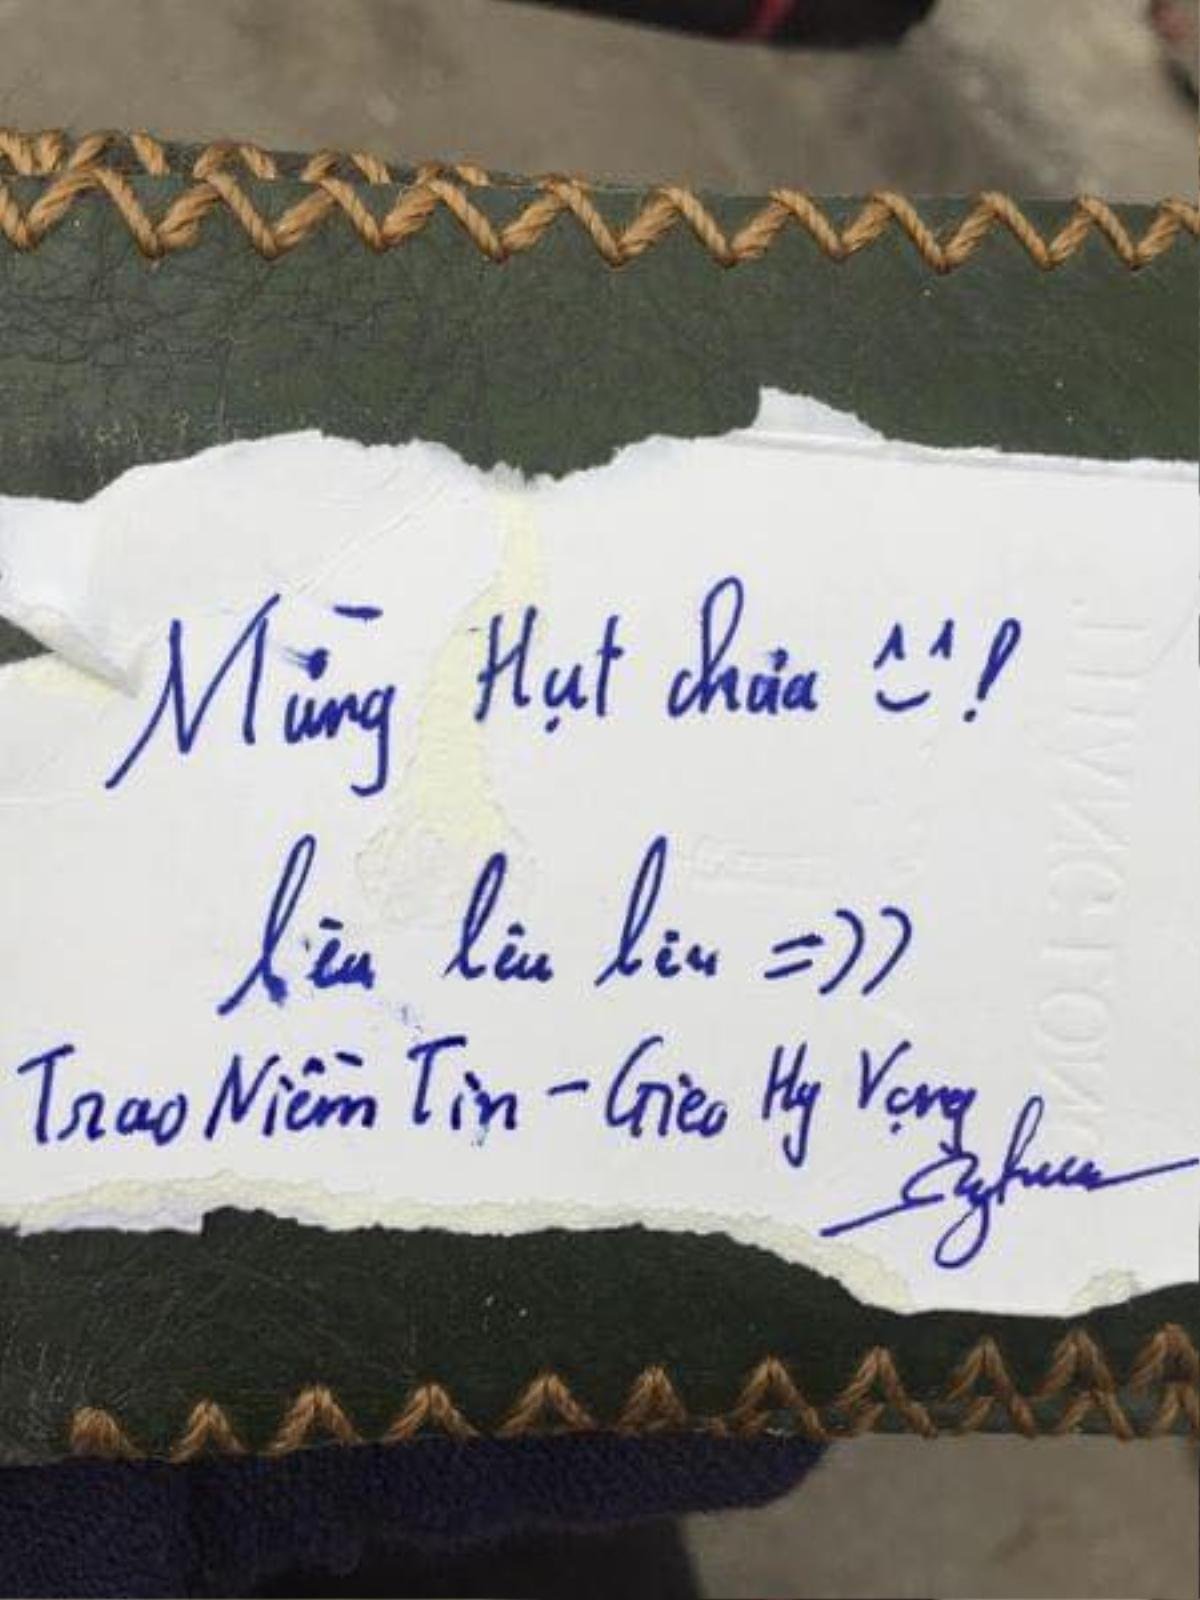 Mừng Hụt chưa ^^!
lêu lêu lêu =))
Trao Niềm Tin - Gieo Hy Vọng